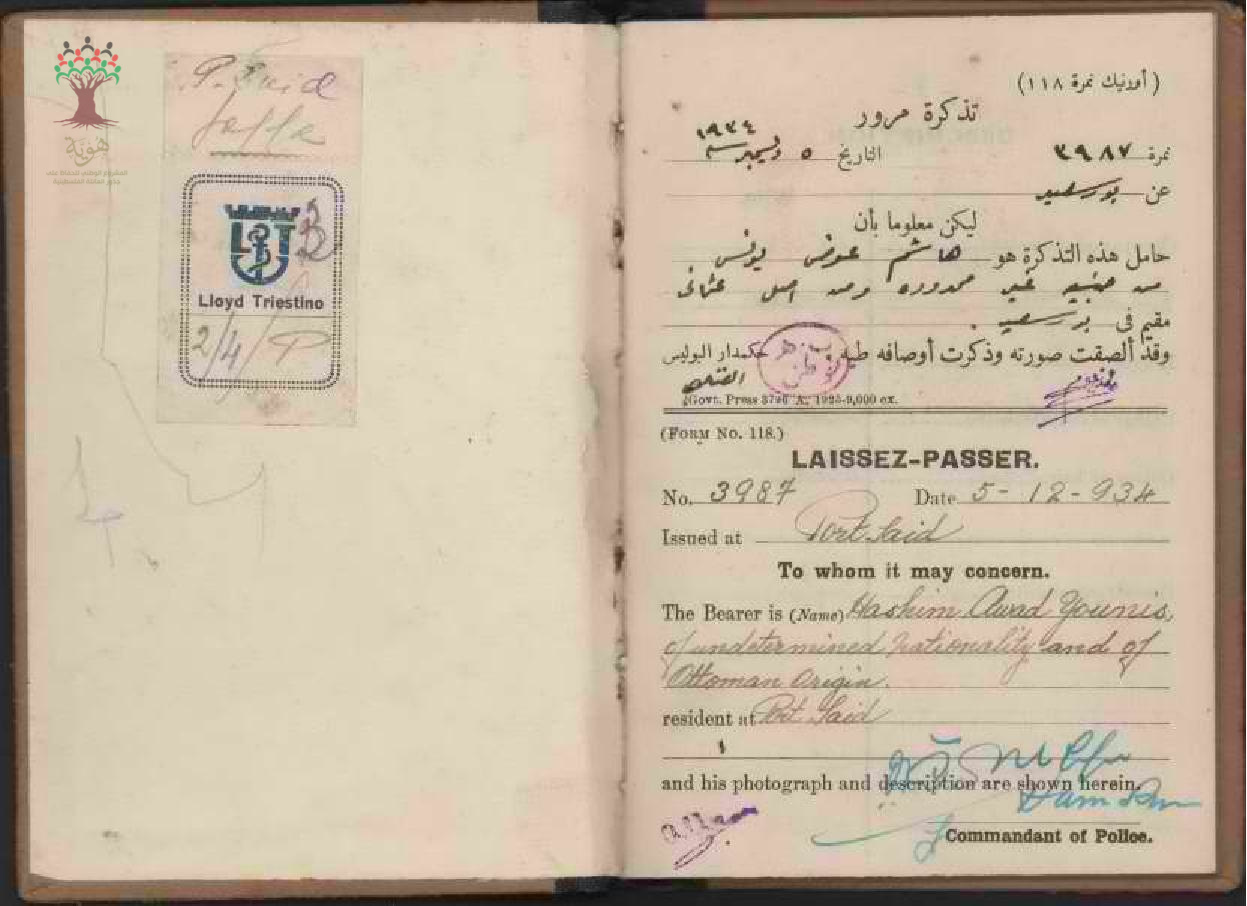 هوية
P. Said
Jaffa
LT
Lloyd Triestino
2/4/P
(أورنيك نمرة ١١٨)
تذكرة مرور
نمرة ٣٩٨٧ التاريخ ٥ ديسمبر سنة ١٩٣٤
عن بورسعيد
ليكن معلوما بأن
حامل هذه التذكرة هو هاشم عوض يونس
من جنسيه غير محدوده ومن اصل عثمانى
مقيم فى بورسعيد .
وقد ألصقت صورته وذكرت أوصافه طيه حكمدار البوليس
القنال
(Govt. Press 3796 A, 1925-9,000 ex.
(FORM No. 118.)
LAISSEZ-PASSER.
No. 3987 Date 5-12-934
Issued at Port Said
To whom it may concern.
The Bearer is (Name) Hashim Awad Younis,
of undetermined nationality and of
Ottoman origin.
resident at Port Said
and his photograph and description are shown herein.
Commandant of Police.